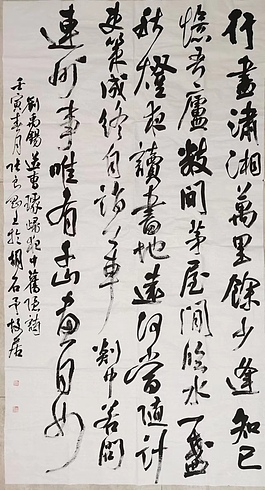 行盡瀟湘萬里餘少逢知己
憶吾廬數間茅屋閒臨水一盞
秋燈夜讀書地遠何當隨計
吏策成終自詣公車剡中若問
連州事唯有千山畫不如
劉禹錫送曹璩歸越中舊隱詩
壬寅春月